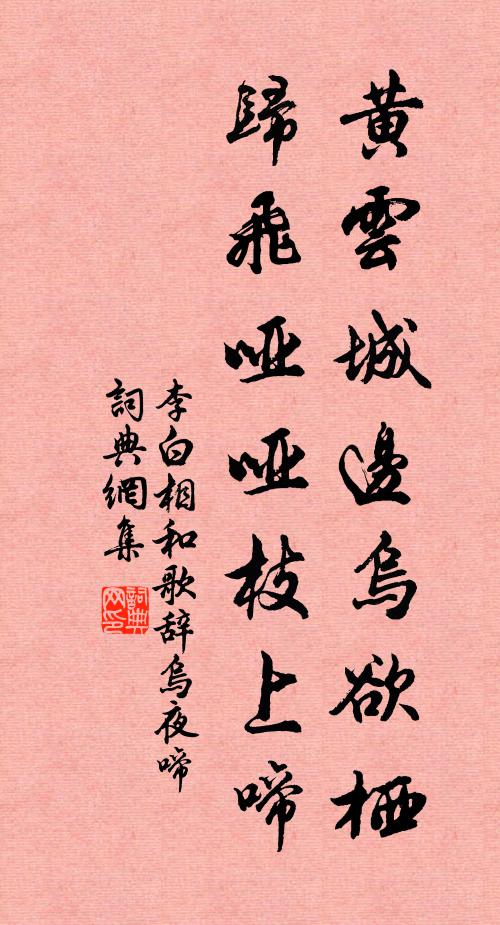 黄雲城邊烏欲栖
歸飛啞啞枝上啼
李白相和歌辞烏夜啼
詞典網集
詞典网印